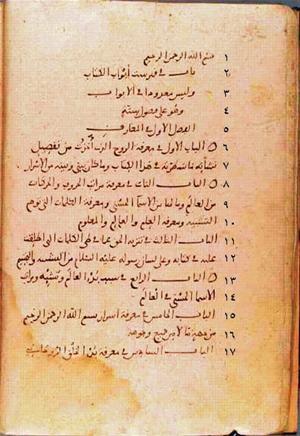 ١ بسم الله الرحمن الرحيم
٢ باب في فهرست أبواب الكتاب
٣ وليس معدودا في الأبواب
٤ وهو على فصول ستة
٥ الفصل الأول في المعارف
٦ الباب الأول في معرفة الروح الذي أخذت من تفصيل
٧ نشأته ما سطرته في هذا الكتاب وما كان بيني وبينه من الأسرار
٨ الباب الثاني في معرفة مراتب الحروف والحركات
٩ من العالم وما لها من الأسماء الحسنى ومعرفة الكلمات التي توهم
١٠ التشبيه ومعرفة العلم والعالم والمعلوم
١١ الباب الثالث في تنزيه الحق عما في الكلمات التي أطلقت
١٢ عليه في كتابه وعلى لسان رسوله عليه السلام من التشبيه والتجسيم
١٣ الباب الرابع في سبب بدء العالم ومراتب
١٤ الأسماء الحسنى في العالم
١٥ الباب الخامس في معرفة أسرار بسم الله الرحمن الرحيم
١٦ من جهة ما لا من جميع وجوهه
١٧ الباب السادس في معرفة بدء الخلق الروحاني